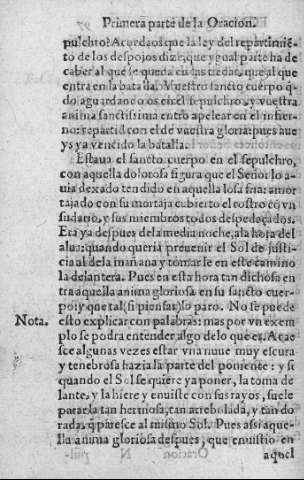 Primera parte de la Oracion.
pulchro? Acuedaos que la ley del repartimiẽ
to de los despojos dize, que ygual parte ha de
caber al que se queda en las tiendas, que al que
entra en la batalla. Vuestro sancto cuerpo q̃
do aguardando os en el sepulchro, y vuestra
anima sanctissima entro a pelear en el infier-
no: repartid con el de vuestra gloria: pues aue
ys ya vencido la batalla.
Estaua el sancto cuerpo en el sepulchro,
con aquella dolorosa figura que el Señor lo a-
uia dexado tendido en aquella losa fria: amor
tajado con su mortaja cubierto el rostro cõ vn
sudario, y sus miembros todos despedaçados.
Era ya despues de la media noche, a la hora del
alua: quando queria preuenir el Sol de justi-
cia al de la mañana y tomarle en este camino
la delantera. Pues en esta hora tan dichosa en
tra aquella anima gloriosa en su sancto cuer-
po: y que tal (si piensas) lo paro. No se puede
Nota.
esto explicar con palabras: mas por vn exem
plo se podra entender algo de lo que es. Acae
sce algunas vezes estar vna nuue muy escura
y tenebrosa hazia la parte del poniente: y si
quando el Sol se quiere ya poner, la toma de
lante, y la hiere y enuiste con sus rayos, suele
pararla tan hermosa, tan arrebolada, y tan do
rada, q̃ paresce al mismo Sol. Pues assi aque-
lla anima gloriosa despues, que enuistio en
aquel